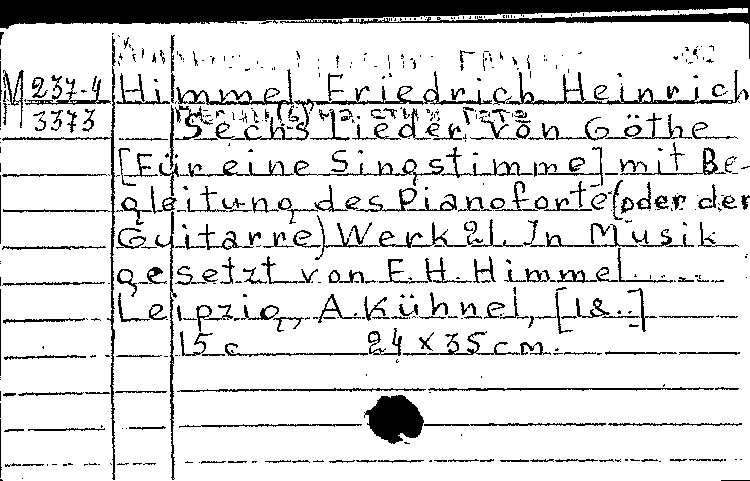 M 237-4
3373
Himmel, Friedrich Heinrich
Sechs Lieder von Göthe
[Für eine Singstimme] mit Be-
gleitung des Pianoforte (oder der
Guitarre) Werk 21. In Musik
gesetzt von F.H. Himmel.....
Leipzig, A. Kühnel, [18..]
15 c 24 x 35 cm.